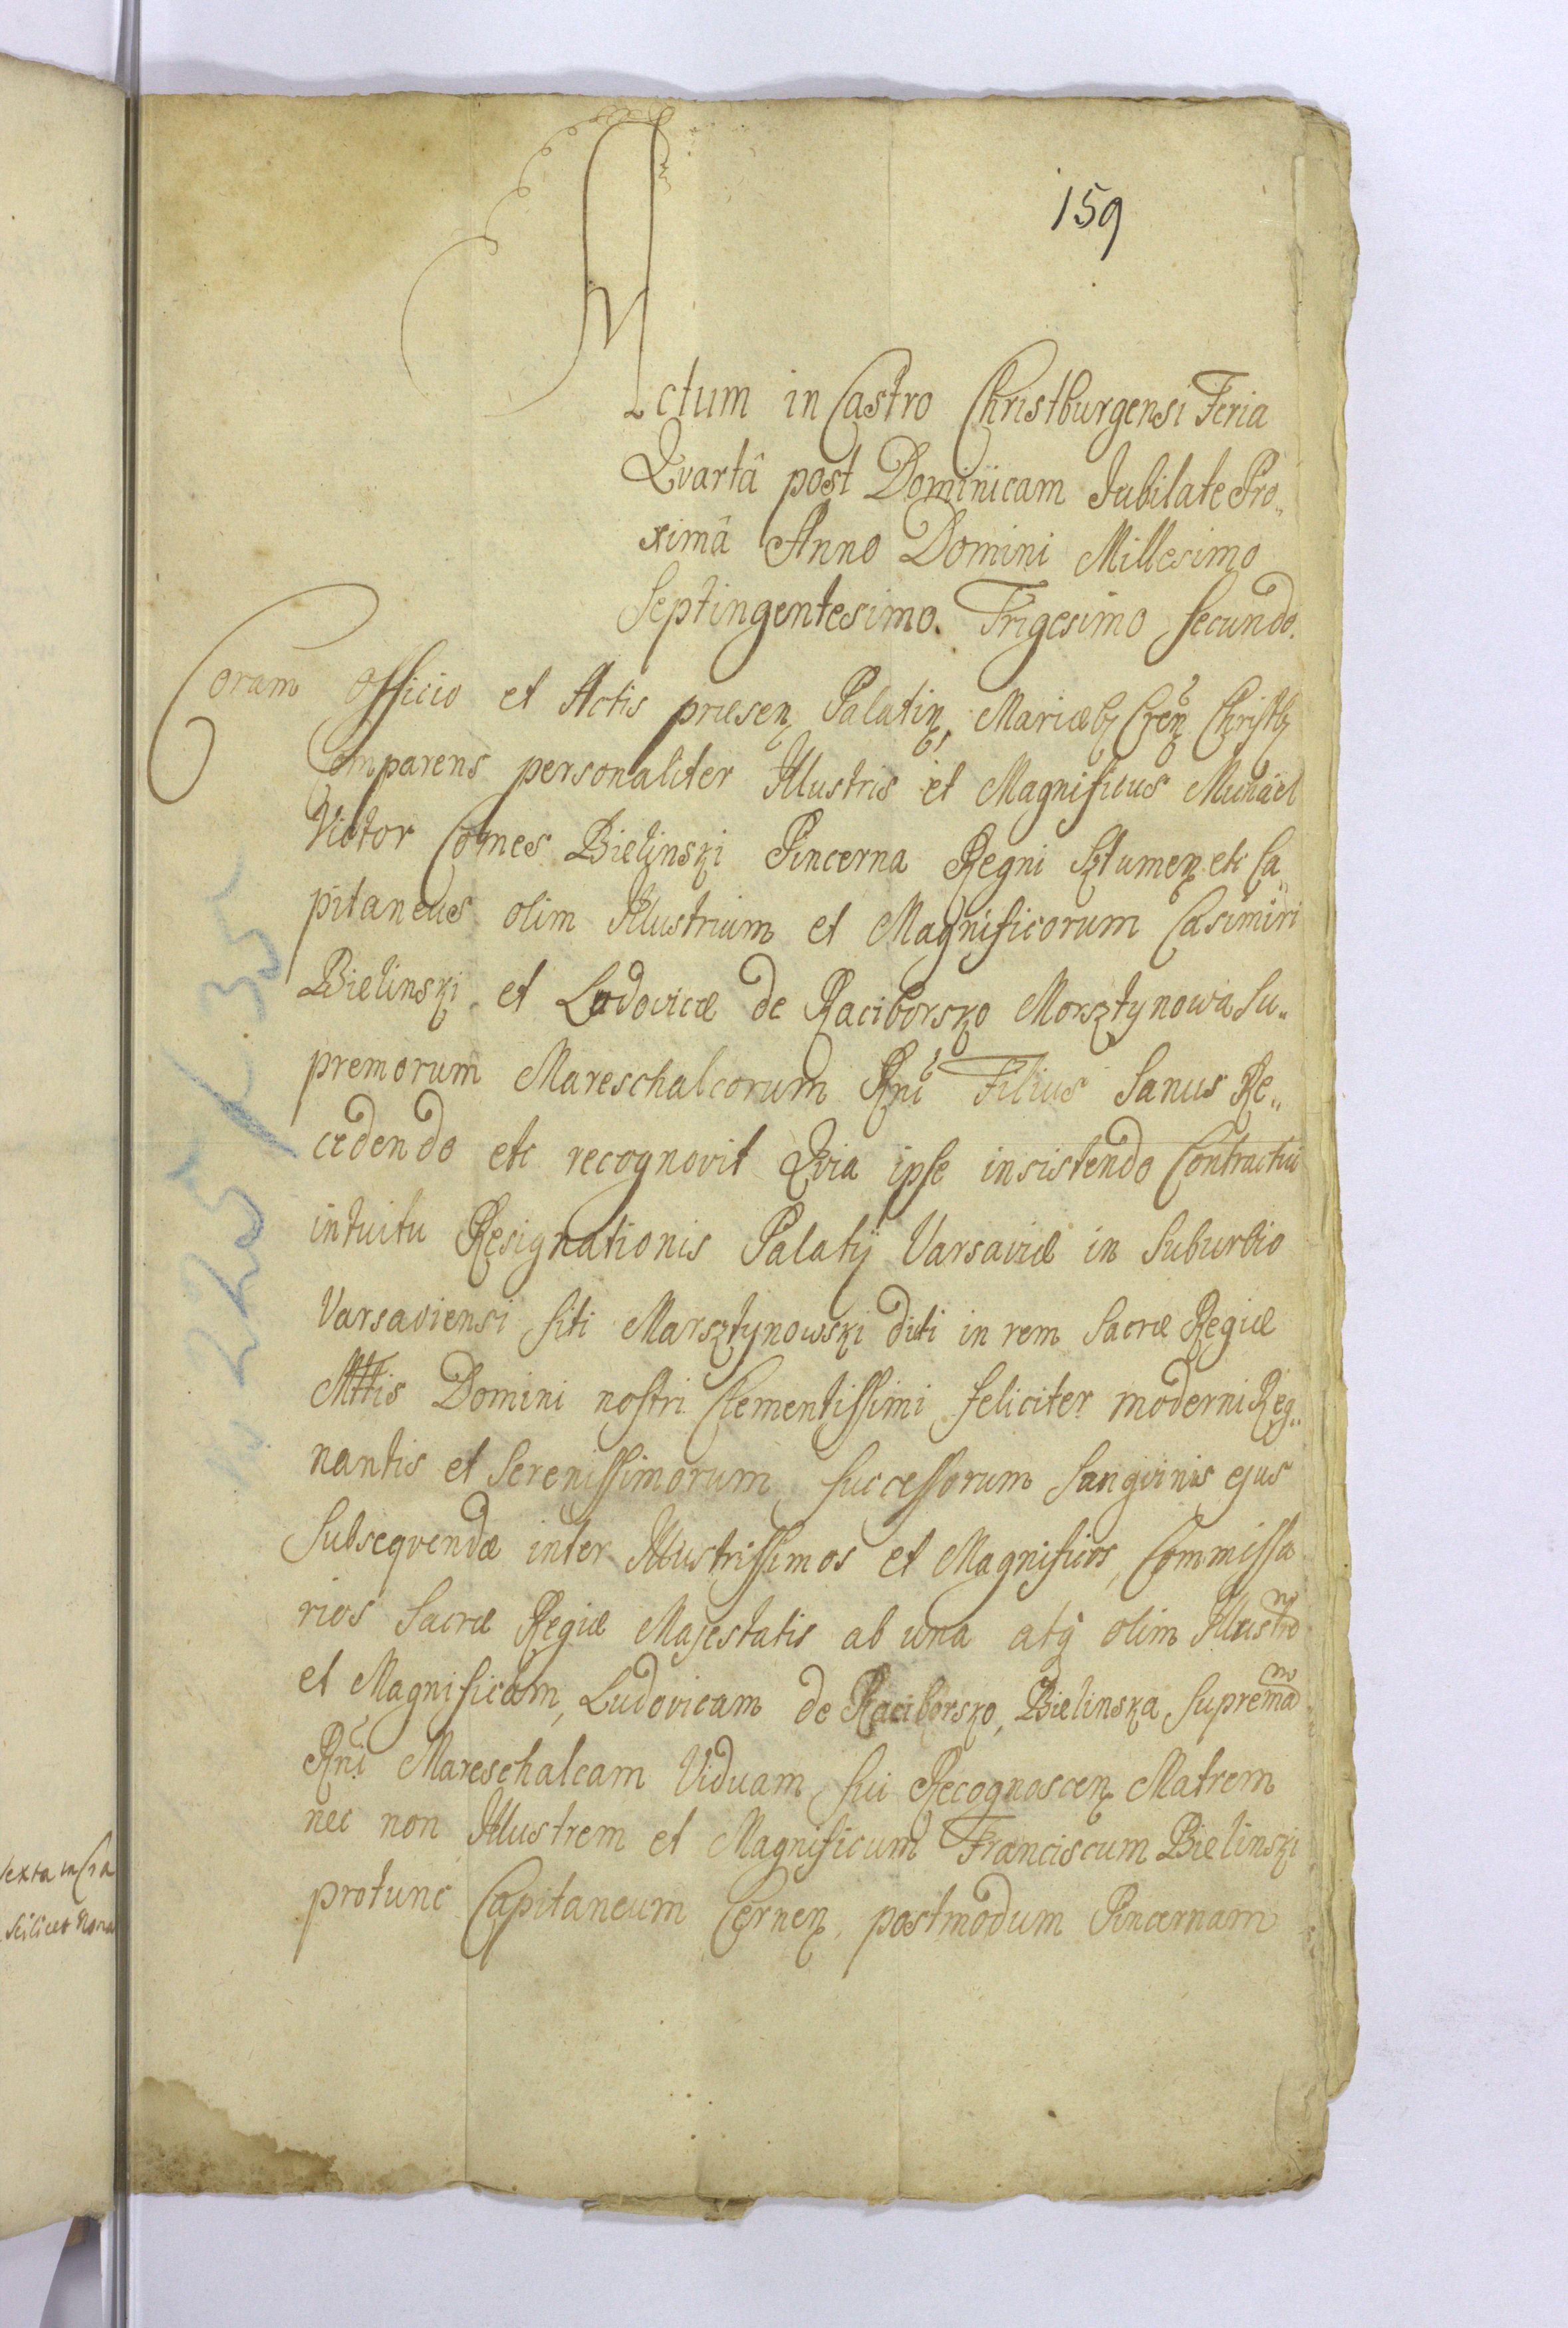 159
Actum in Castro Christburgensi Feria
Qvartâ post Dominicam Jubilate Pro„
ximâ Anno Domini Millesimo
Septingentesimo Trigesimo Secundo.
Coram Officio et Actis præsen Palatin Mariæb Cren Christb
Comparens personaliter Illustris et Magnificus Michael
Victor Comes Bielinski Pincerna Regni Sztumen etc Ca„
pitaneus olim Illustrium et Magnificorum Casimiri
Bielinski et Ludovicæ de Raciborsko Morsztynowa Su„
premorum Mareschalcorum Rni Filius Sanus Re„
cedendo etc recognovit Qvia ipse insistendo Contractui
intuitu Resignationis Palatij Varsaviæ in Suburbio
Varsaviensi siti Marsztynowski dicti in rem Sacræ Regiæ
Mttis Domini nostri Clementissimi feliciter moderni Reg„
nantis et Serenissimorum successorum Sangvinis ejus
Subseqvendæ inter Illustrissimos et Magnificos, Commissa
rios Sacræ Regiæ Majestatis ab una atq olim Illustrem
et Magnificam, Ludovicam de Raciborsko, Bielinska Supremam
Rni Mareschalcam Viduam sui Recognoscen Matrem
nec non Illustrem et Magnificum Franciscum Bielinski
protunc Capitaneum Cernen, postmodum Pincernam